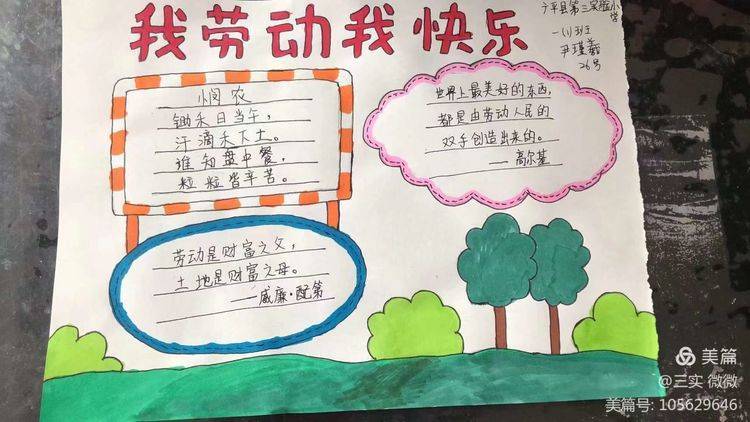 我劳动我快乐
广平县第三实验小学
一(1)班
尹瑾羲
26号
悯农
锄禾日当午,
汗滴禾下土。
谁知盘中餐,
粒粒皆辛苦。
世界上最美好的东西,
都是由劳动人民的
双手创造出来的。
——高尔基
劳动是财富之父,
土地是财富之母。
——威廉·配第
美篇
@三实 微微
美篇号: 105629646